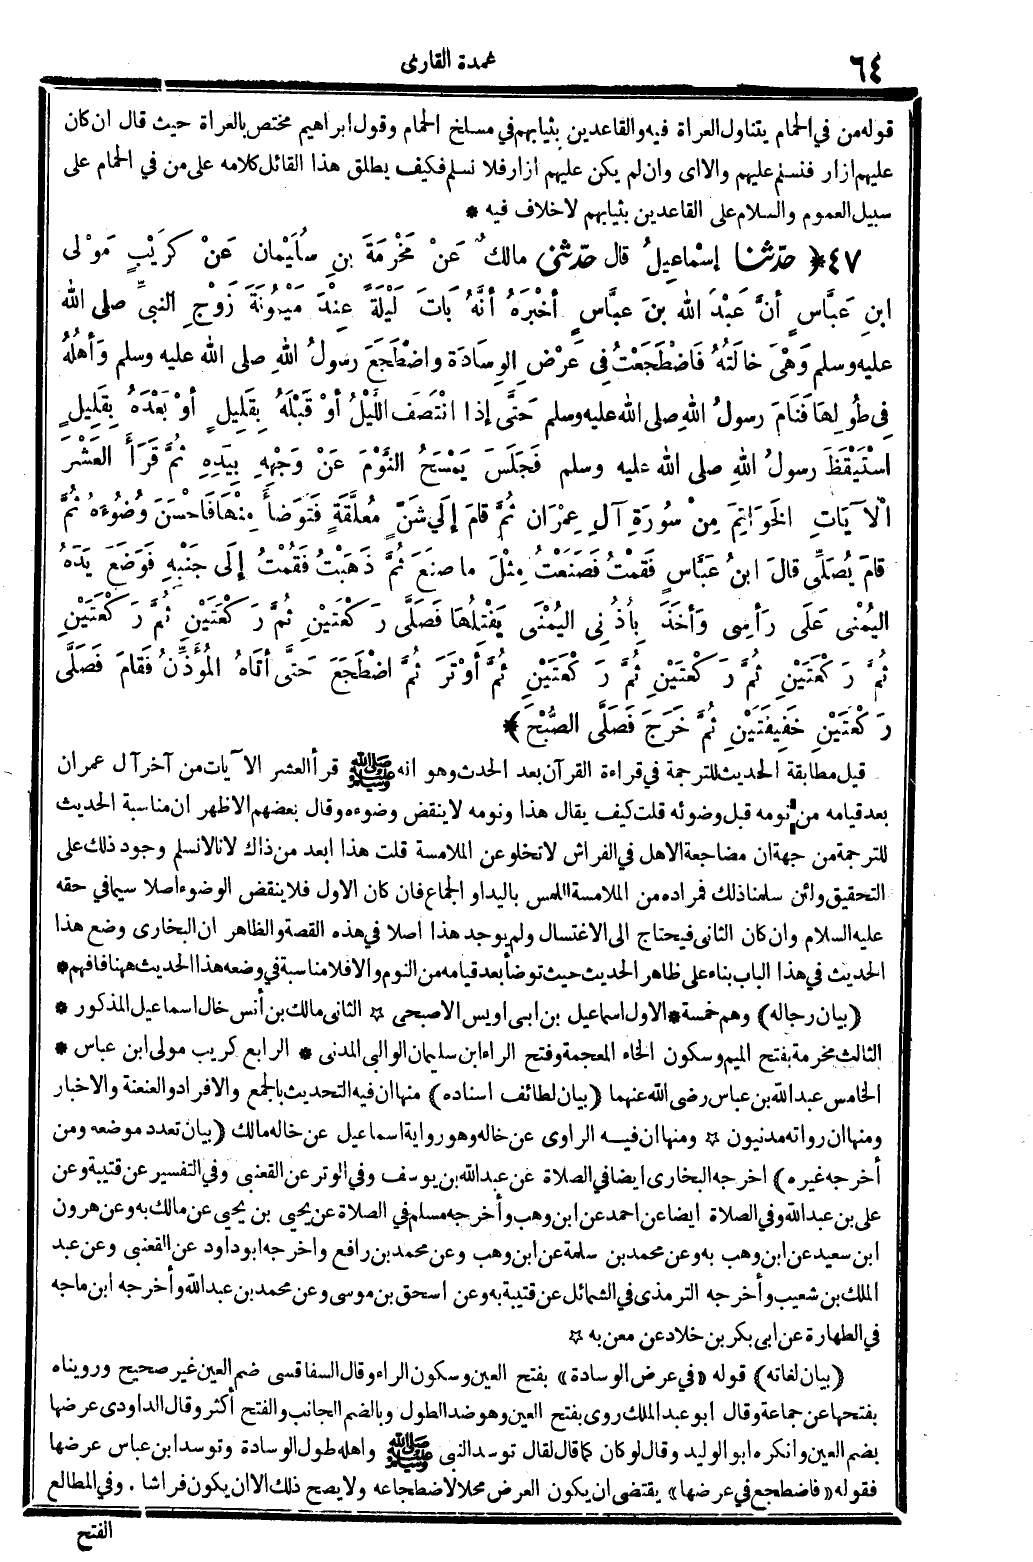 ٦٤
عمدة القارى
قوله من في الحمام يتناول العراة فيه والقاعدين بثيابهم في مسلخ الحمام وقول ابراهيم مختص بالعراة حيث قال ان كان
عليهم ازار فنسلم عليهم والا اى وان لم يكن عليهم ازار فلا نسلم فكيف يطلق هذا القائل كلامه على من في الحمام على
سبيل العموم والسلام على القاعدين بثيابهم لا خلاف فيه *
٤٧ ﴿ حدّثنا إسْماعِيلُ قال حدّثني مالكٌ عَنْ مَخْرَمَةَ بنِ سُلَيْمان عَنْ كُرَيْبٍ مَوْلى
ابنِ عَبَّاسٍ أنَّ عَبْدَ الله بنَ عبَّاسٍ أخْبَرَهُ أنَّهُ باتَ لَيْلَةً عِنْدَ مَيْمُونَةَ زَوْجِ النبيِّ صلى الله
عليه وسلم وَهْىَ خالَتُهُ فَاضْطَجَعْتُ فِي عَرْضِ الوِسَادَةِ واضْطَجَعَ رسولُ اللهِ صلى الله عليه وسلم وَأهْلُهُ
فِي طُولِهَا فَنَامَ رسولُ اللهِ صلى الله عليه وسلم حَتَّى إذا انْتَصَفَ اللَّيْلُ أوْ قَبْلَهُ بِقَلِيلٍ أوْ بَعْدَهُ بِقَلِيلٍ
اسْتَيْقَظَ رسولُ اللهِ صلى الله عليه وسلم فَجَلَسَ يَمْسَحُ النَّوْمَ عَنْ وَجْهِهِ بِيَدِهِ ثُمَّ قَرَأَ العَشْرَ
الْآيَاتِ الخَوَاتِمَ مِنْ سُورَةِ آلِ عِمْرَان ثُمَّ قامَ إلَي شَنٍّ مُعلَّقَةٍ فَتَوَضأَ مِنْهَا فَاحْسَنَ وُضُوءَهُ ثُمَّ
قامَ يُصَلِّى قالَ ابنُ عَبَّاسٍ فَقمْتُ فَصَنَعْتُ مِثْلَ ما صنَعَ ثُمَّ ذَهَبْتُ فَقُمْتُ إلَى جَنْبِهِ فَوَضَعَ يَدَهُ
اليُمْنى عَلَى رَأسِى وَأخَذَ بِأذُنِى اليُمْنَى يَفْتِلُهَا فَصَلَّى رَكْعَتَيْنِ ثُمَّ رَكْعَتَيْنِ ثُمَّ رَكْعَتَيْنِ
ثُمَّ رَكْعَتَيْنِ ثُمَّ رَكْعَتَيْنِ ثُمَّ رَكْعَتَيْنِ ثُمَّ أوْتَرَ ثُمَّ اضْطَجَعَ حَتَّى أتَاهُ المُؤَذِّنُ فَقامَ فَصَلَّى
رَكْعَتَيْنِ خَفِيفَتَيْنِ ثُمَّ خَرَجَ فَصَلَّى الصُّبْحَ ﴾
قيل مطابقة الحديث للترجمة في قراءة القرآن بعد الحدث وهو انه ﷺ قرأ العشر الآيات من آخر آل عمران
بعد قيامه من نومه قبل وضوئه قلت كيف يقال هذا ونومه لا ينقض وضوءه وقال بعضهم الاظهر ان مناسبة الحديث
للترجمة من جهة ان مضاجعة الاهل في الفراش لا تخلو عن الملامسة قلت هذا ابعد من ذاك لانا لا نسلم وجود ذلك على
التحقيق ولئن سلمنا ذلك فمراده من الملامسة اللمس باليد او الجماع فان كان الاول فلا ينقض الوضوء اصلا سيما في حقه
عليه السلام وان كان الثاني فيحتاج الى الاغتسال ولم يوجد هذا اصلا في هذه القصة والظاهر ان البخارى وضع هذا
الحديث في هذا الباب بناء على ظاهر الحديث حيث توضأ بعد قيامه من النوم والا فلا مناسبة في وضعه هذا الحديث ههنا فافهم *
(بيان رجاله) وهم خمسة * الاول اسماعيل بن ابى اويس الاصبحى ☆ الثانى مالك بن أنس خال اسماعيل المذكور *
الثالث مخرمة بفتح الميم وسكون الخاء المعجمة وفتح الراء ابن سليمان الوالبى المدنى * الرابع كريب مولى ابن عباس *
الخامس عبد الله بن عباس رضى الله عنهما (بيان لطائف اسناده) منها ان فيه التحديث بالجمع والافراد والعنعنة والاخبار
ومنها ان رواته مدنيون ☆ ومنها ان فيه الراوى عن خاله وهو رواية اسماعيل عن خاله مالك (بيان تعدد موضعه ومن
أخرجه غيره) اخرجه البخارى ايضا في الصلاة عن عبد الله بن يوسف وفي الوتر عن القعنبى وفي التفسير عن قتيبة وعن
على بن عبد الله وفي الصلاة ايضا عن احمد عن ابن وهب وأخرجه مسلم في الصلاة عن يحيى بن يحيى عن مالك به وعن هرون
ابن سعيد عن ابن وهب به وعن محمد بن سلمة عن ابن وهب وعن محمد بن رافع واخرجه ابو داود عن القعنبى وعن عبد
الملك بن شعيب وأخرجه الترمذى في الشمائل عن قتيبة به وعن اسحق بن موسى وعن محمد بن عبد الله وأخرجه ابن ماجه
في الطهارة عن ابى بكر بن خلاد عن معن به ☆
(بيان لغاته) قوله «في عرض الوسادة» بفتح العين وسكون الراء وقال السفاقسى ضم العين غير صحيح ورويناه
بفتحها عن جماعة وقال ابو عبد الملك روى بفتح العين وهو ضد الطول وبالضم الجانب والفتح أكثر وقال الداودى عرضها
بضم العين وانكره ابو الوليد وقال لو كان كما قال لقال توسد النبى ﷺ واهله طول الوسادة وتوسد ابن عباس عرضها
فقوله «فاضطجع في عرضها» يقتضى ان يكون العرض محلا لاضطجاعه ولا يصح ذلك الا ان يكون فراشا . وفي المطالع
الفتح